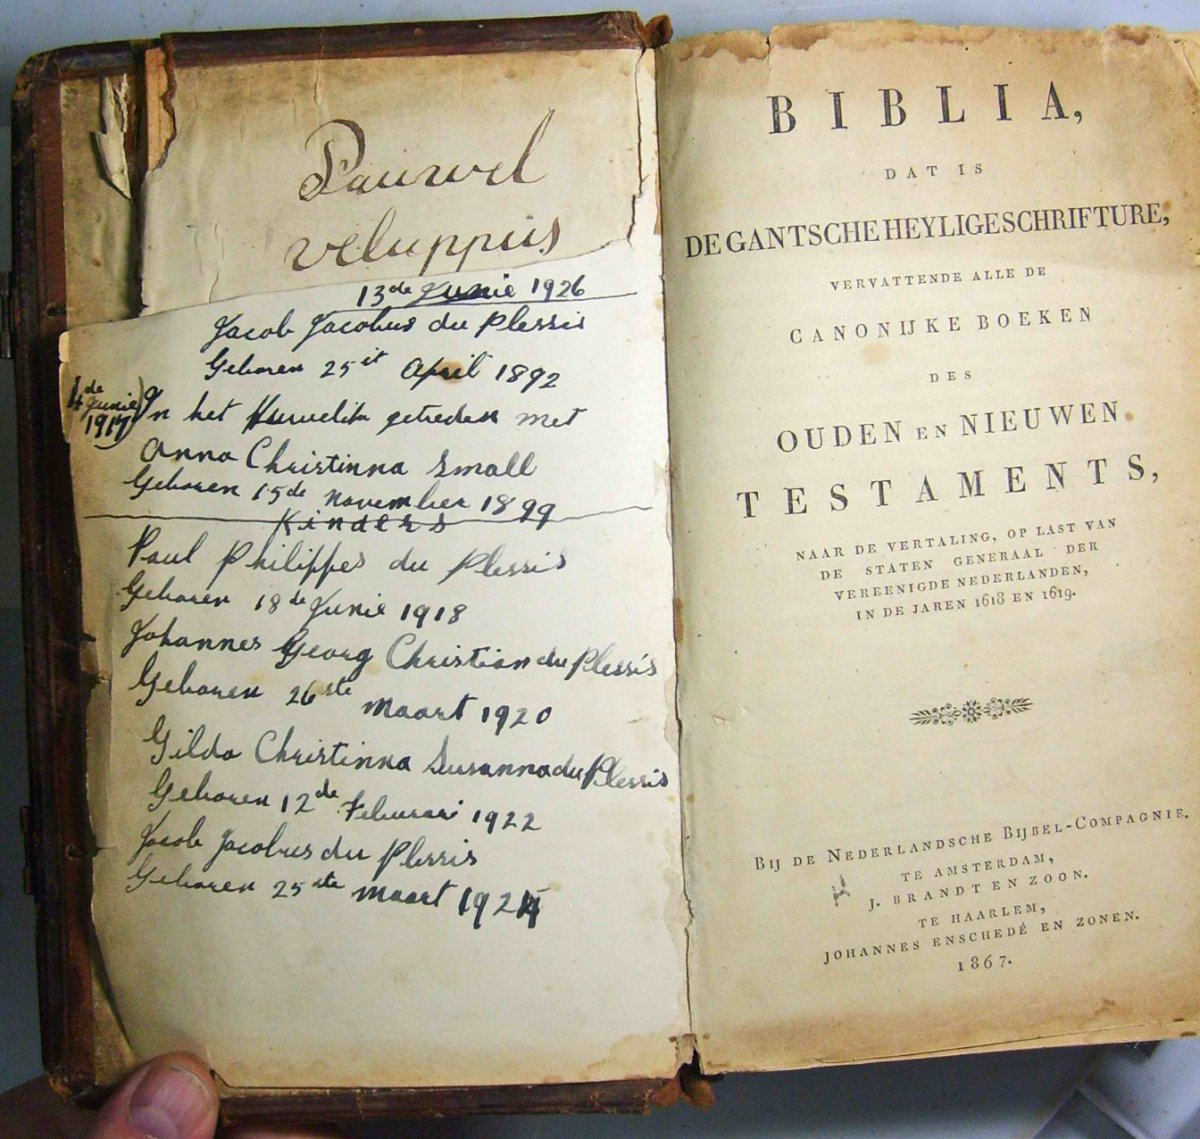 Pauwel
veluppus
13de Junie 1926
Jacob Jacobus du Plessis
Geboren 25st April 1892
4de Junie 1917)
In het Huwelik getreden met
Anna Christinna Small
Geboren 15de November 1899
Kinders
Paul Philippes du Plessis
Geboren 18de Junie 1918
Johannes Georg Christian du Plessis
Geboren 26ste Maart 1920
Gilda Christinna Susanna du Plessis
Geboren 12de Feburari 1922
Jacob Jacobus du Plessis
Geboren 25ste Maart 1924
BIBLIA,
DAT IS
DE GANTSCHE HEYLIGE SCHRIFTURE,
VERVATTENDE ALLE DE
CANONIJKE BOEKEN
DES
OUDEN EN NIEUWEN
TESTAMENTS,
NAAR DE VERTALING, OP LAST VAN
DE STATEN GENERAAL DER
VEREENIGDE NEDERLANDEN,
IN DE JAREN 1618 EN 1619.
BIJ DE NEDERLANDSCHE BIJBEL-COMPAGNIE.
TE AMSTERDAM,
J. BRANDT EN ZOON.
TE HAARLEM,
JOHANNES ENSCHEDÉ EN ZONEN.
1867.